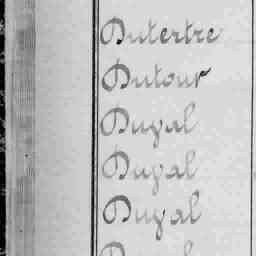 Dutertre
Dutour
Duval
Duval
Duval